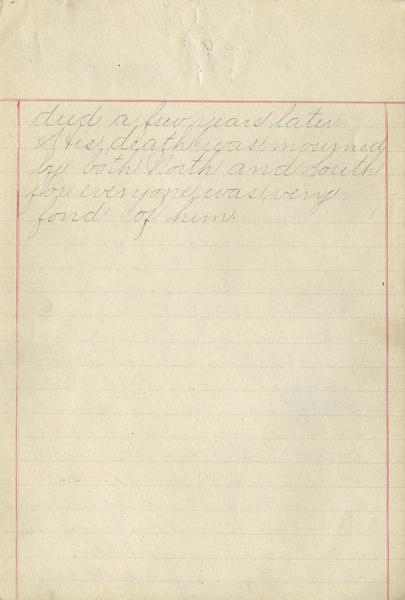 died a few years later.
His death was mourned
by both North and South
for everyone was very
fond of him.